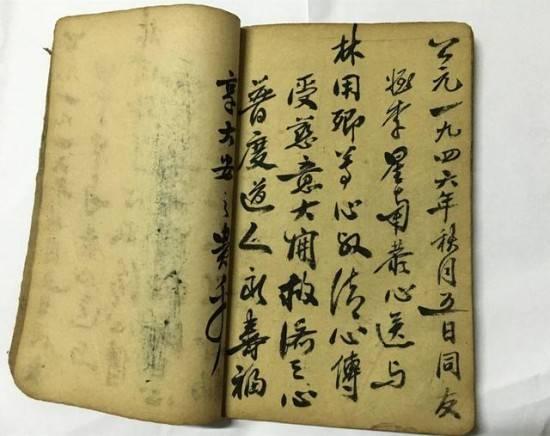 公元一九四六年秋月五日同友
李星甫叢心送与
林用卿等心敬清心傳
受慈意大開救濟之心
普度道人永壽福
享大安之貴